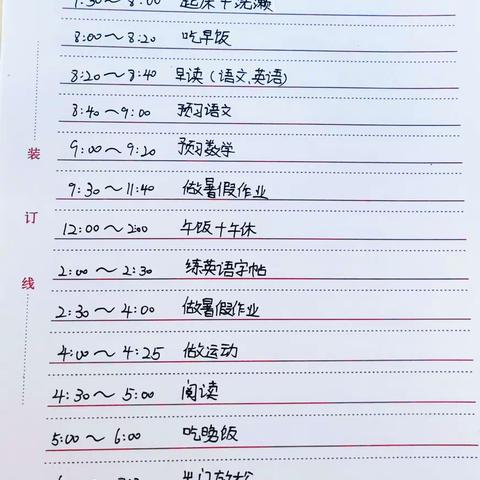 7:30～8:00 起床+洗漱
8:00～8:20 吃早饭
8:20～8:40 早读(语文、英语)
8:40～9:00 预习语文
9:00～9:20 预习数学
9:30～11:40 做暑假作业
12:00～2:00 午饭+午休
2:00～2:30 练英语字帖
2:30～4:00 做暑假作业
4:00～4:25 做运动
4:30～5:00 阅读
5:00～6:00 吃晚饭
出门放松
装
订
线